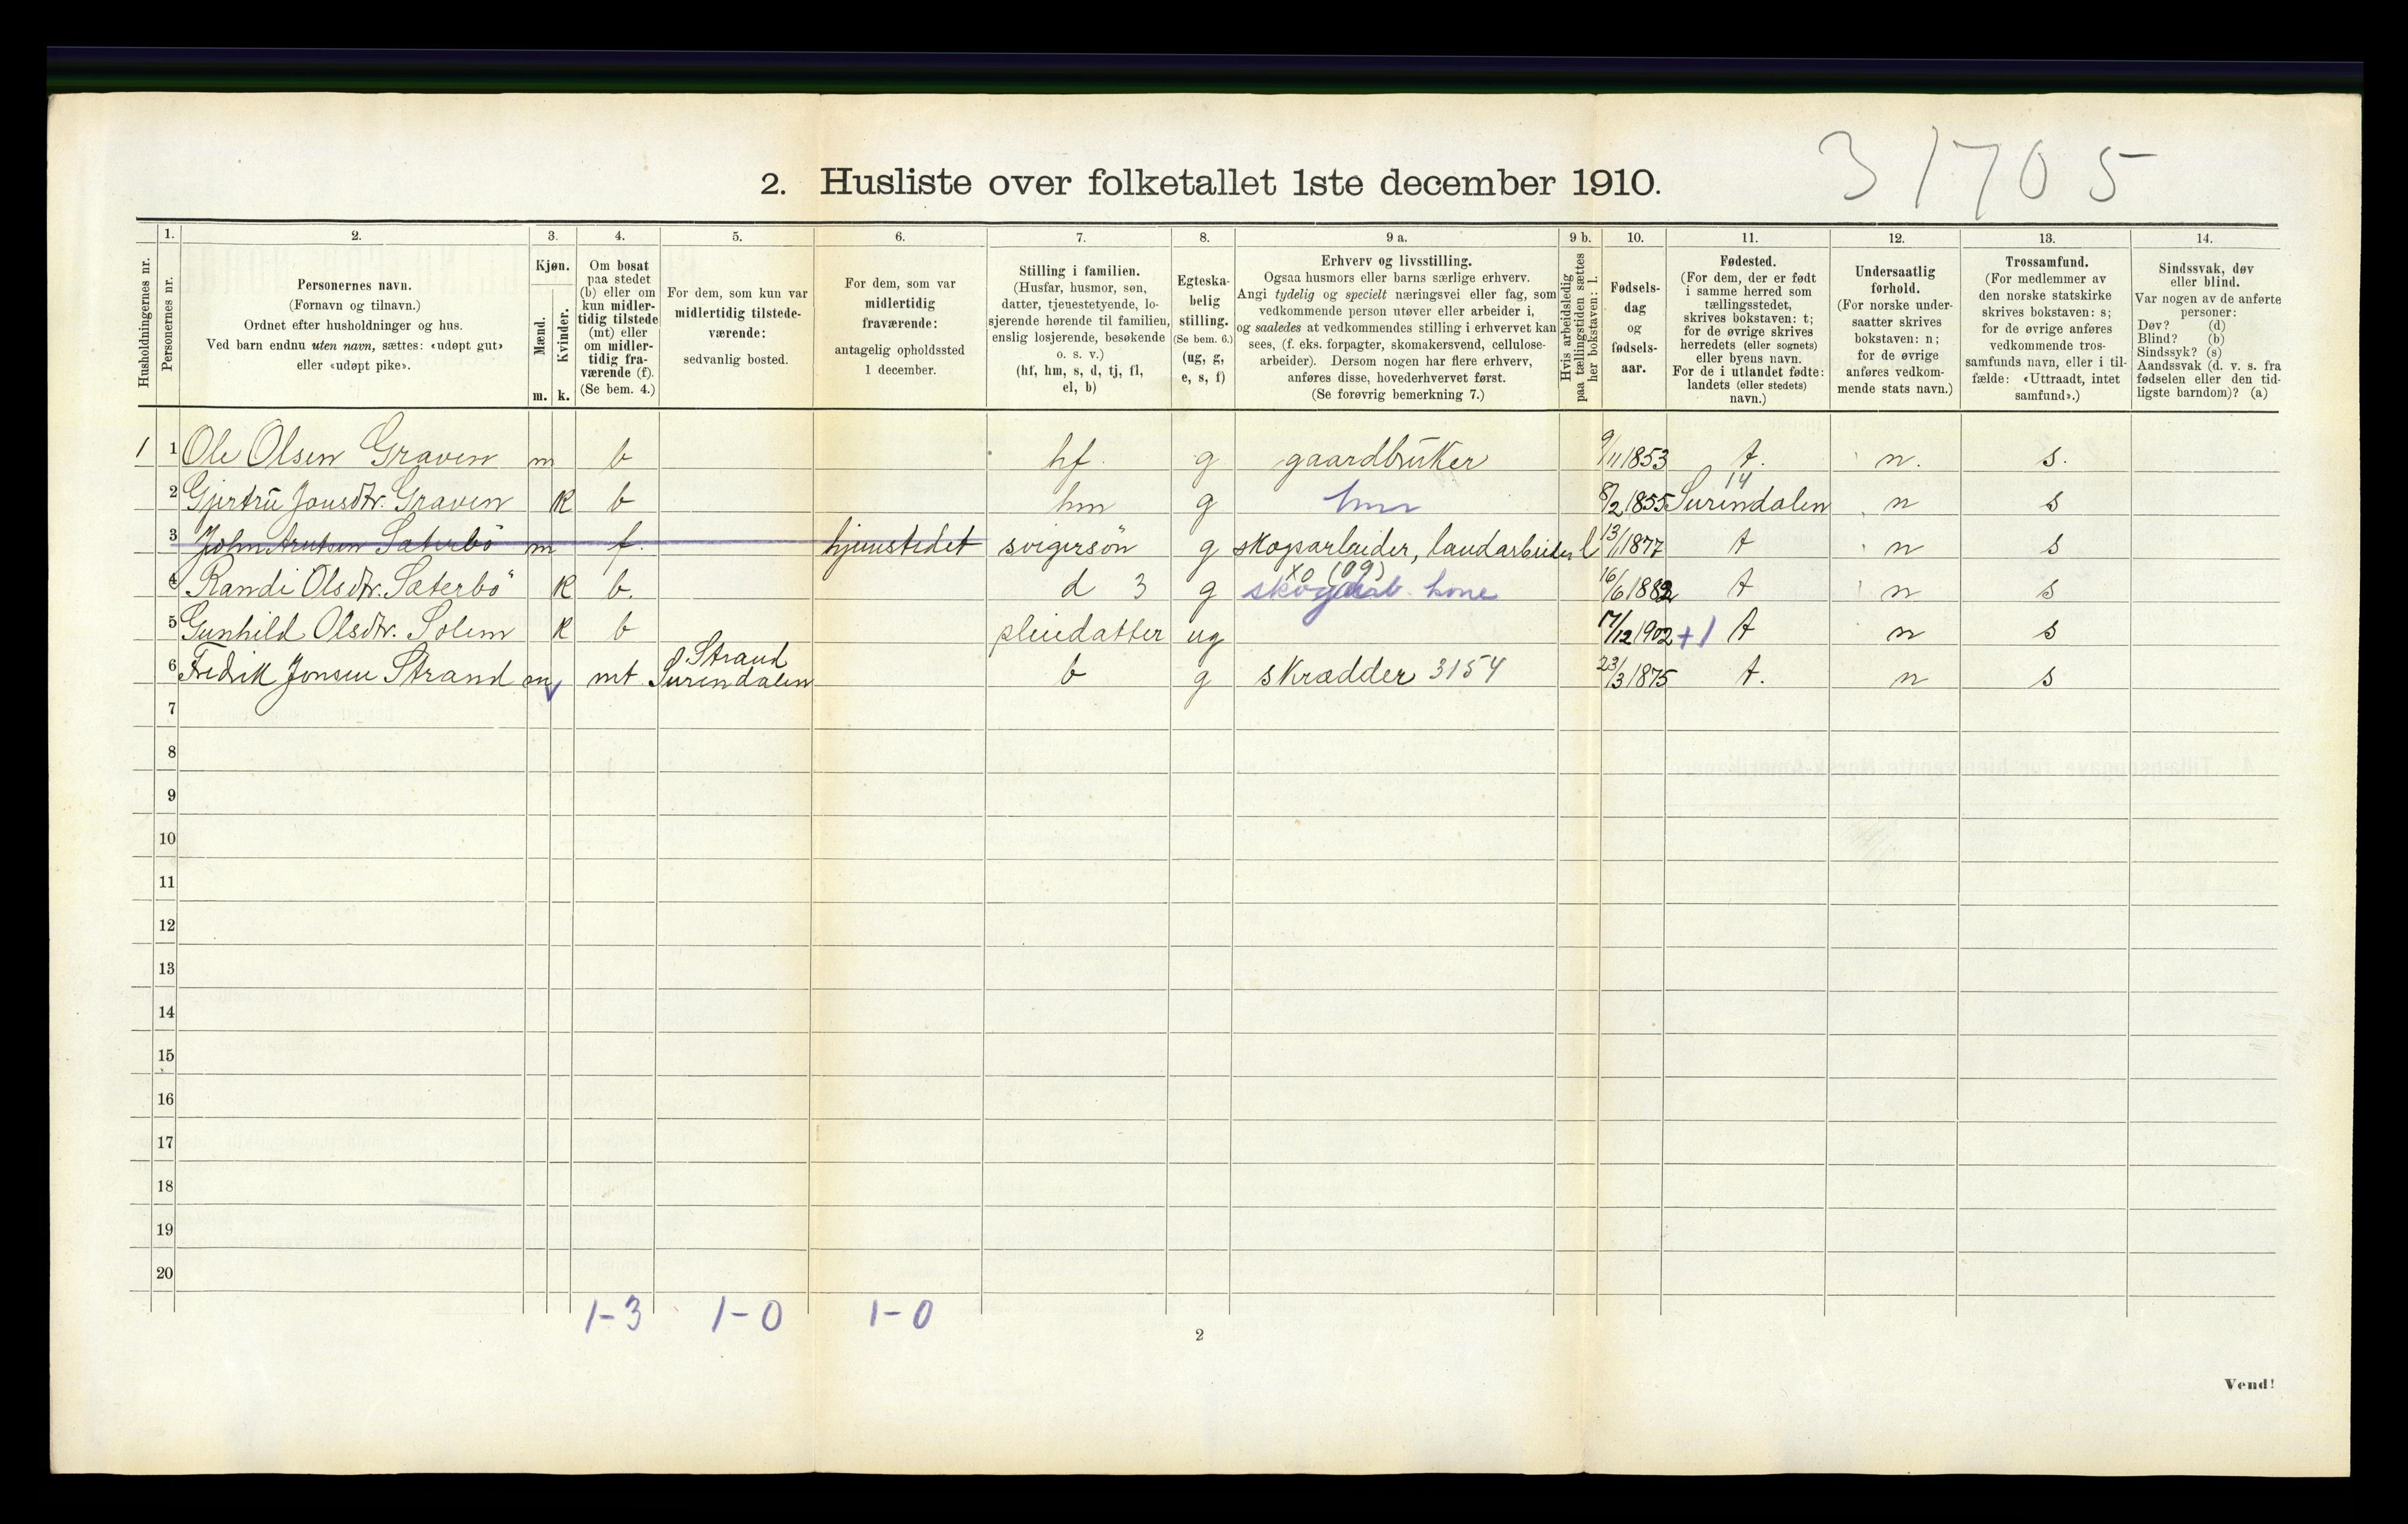 31705
2. Husliste over folketallet 1ste december 1910.
Husholdningernes nr.
1.
Personernes nr.
2.
Personernes navn.
(Fornavn og tilnavn.)
Ordnet efter husholdninger og hus.
Ved barn endnu uten navn, sættes: «udøpt gut»
eller «udøpt pike».
3.
Kjøn.
Mænd.
Kvinder.
m. k.
4.
Om bosat
paa stedet
(b) eller om
kun midler-
tidig tilstede
(mt) eller
om midler-
tidig fra-
værende (f).
(Se bem. 4.)
5.
For dem, som kun var
midlertidig tilstede-
værende:
sedvanlig bosted.
6.
For dem, som var
midlertidig
fraværende:
antagelig opholdssted
1 december.
7.
Stilling i familien.
(Husfar, husmor, søn,
datter, tjenestetyende, lo-
sjerende hørende til familien,
enslig losjerende, besøkende
o. s. v.)
(hf, hm, s, d, tj, fl,
el, b)
8.
Egteska-
belig
stilling.
(Se bem. 6.)
(ug, g,
e, s, f)
9 a.
Erhverv og livsstilling.
Ogsaa husmors eller barns særlige erhverv.
Angi tydelig og specielt næringsvei eller fag, som
vedkommende person utøver eller arbeider i,
og saaledes at vedkommendes stilling i erhvervet kan
sees, (f. eks. forpagter, skomakersvend, cellulose-
arbeider). Dersom nogen har flere erhverv,
anføres disse, hovederhvervet først.
(Se forøvrig bemerkning 7.)
9 b.
Hvis arbeidsledig
paa tællingstiden sættes
her bokstaven: l.
10.
Fødsels-
dag
og
fødsels-
aar.
11.
Fødested.
(For dem, der er født
i samme herred som
tællingsstedet,
skrives bokstaven: t;
for de øvrige skrives
herredets (eller sognets)
eller byens navn.
For de i utlandet fødte:
landets (eller stedets)
navn.)
12.
Undersaatlig
forhold.
(For norske under-
saatter skrives
bokstaven: n;
for de øvrige
anføres vedkom-
mende stats navn.)
13.
Trossamfund.
(For medlemmer av
den norske statskirke
skrives bokstaven: s;
for de øvrige anføres
vedkommende tros-
samfunds navn, eller i til-
fælde: «Uttraadt, intet
samfund».)
14.
Sindssvak, døv
eller blind.
Var nogen av de anførte
personer:
Døv? (d)
Blind? (b)
Sindssyk? (s)
Aandssvak (d. v. s. fra
fødselen eller den tid-
ligste barndom)? (a)
1 1 Ole Olsen Graven m b hf. g gaardbruker 9/11 1853 t. n. s.
2 Gjertru Jonsdtr. Graven k b hm g hm 8/2 1855 Surendalen 14 n s
3 John Sæterbö m f. hjemstedet svigersön g skogsarbeider, landarbeider l 13/1 1877 t n s
4 Randi Olsdtr. Sæterbö k b. d 3 g x0 (09) skogarb. kone 16/6 1882 t n s
5 Gunhild Olsdtr. Solem k b pleiedatter ug 17/12 1902 +1 t n s
6 Fredrik Jonsen Strand m mt Strand Surendalen b g skrædder 3154 23/3 1875 t. n s
7
8
9
10
11
12
13
14
15
16
17
18
19
20
1-3 1-0 1-0
2
Vend!